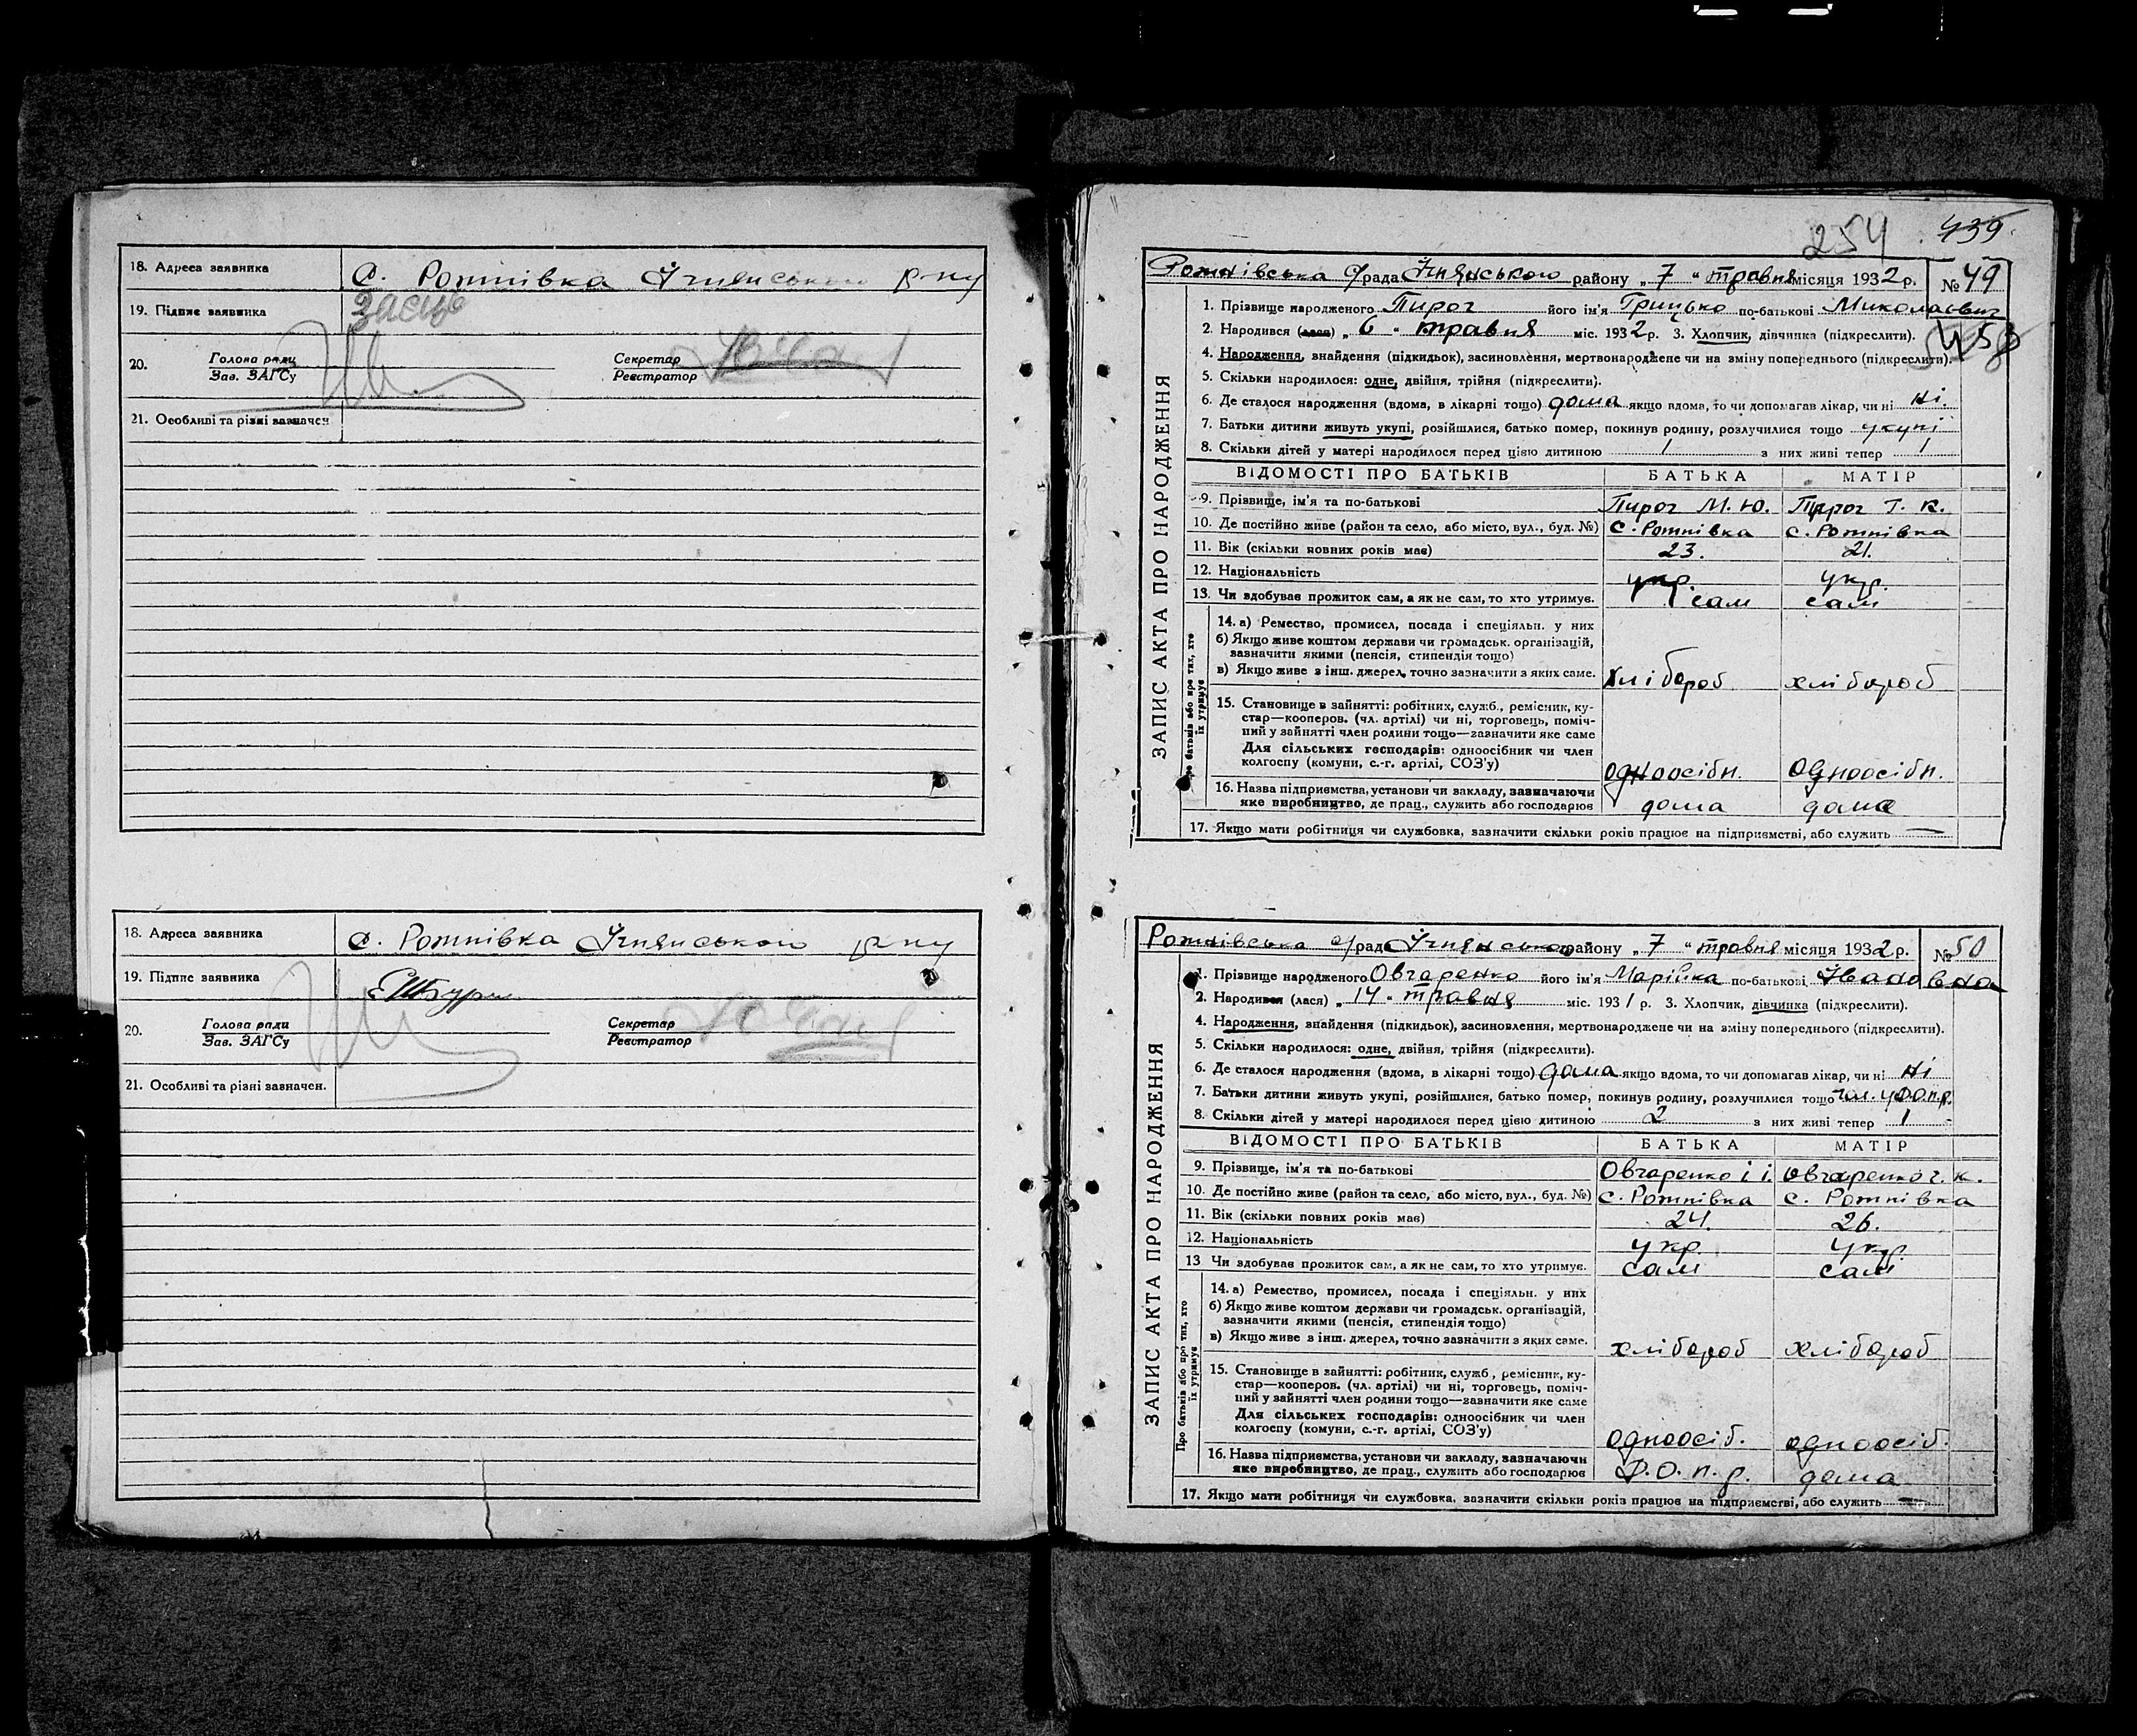 18. Адреса заявника С. Ротнівка Ічнянського р-ну
19. Підпис заявника Заєць
20. Голова ради Зав. ЗАГСу Секретар Реєстратор
21. Особливі та різні зазначен.
18. Адреса заявника С. Ротнівка Ічнянського р-ну
19. Підпис заявника
20. Голова ради Зав. ЗАГСу Секретар Реєстратор
21. Особливі та різні зазначен.
254 439
ЗАПИС АКТА ПРО НАРОДЖЕННЯ
с/рада Ічнянського району „ 7 “ травня місяця 1932 р. № 49
1. Прізвище народженого Пирог його ім'я Грицько по-батькові Миколаєвич
2. Народився (лася) „ 6 “ травня міс. 1932 р. 3. Хлопчик, дівчинка (підкреслити).
458
4. Народження, знайдення (підкидьок), засиновлення, мертвонароджене чи на зміну попереднього (підкреслити).
5. Скільки народилося: одне, двійня, трійня (підкреслити).
6. Де сталося народження (вдома, в лікарні тощо) дома якщо вдома, то чи допомагав лікар, чи ні ні.
7. Батьки дитини живуть укупі, розійшлися, батько помер, покинув родину, розлучилися тощо укупі
8. Скільки дітей у матері народилося перед цією дитиною 1 з них живі тепер 1
ВІДОМОСТІ ПРО БАТЬКІВ БАТЬКА МАТІР
9. Прізвище, ім'я та по-батькові Пирог М. Ю. Пирог Т. К.
10. Де постійно живе (район та село, або місто, вул., буд. №) с. Ротнівка с. Ротнівка
11. Вік (скільки повних років має) 23. 21.
12. Національність укр. укр.
13. Чи здобуває прожиток сам, а як не сам, то хто утримує. сам сам
Про батьків або про тих, хто їх утримує
14. а) Ремество, промисел, посада і спеціяльн. у них
б) Якщо живе коштом держави чи громадськ. організацій,
зазначити якими (пенсія, стипендія тощо)
в) Якщо живе з інш. джерел, точно зазначити з яких саме. хлібороб хлібороб
15. Становище в зайнятті: робітник, служб., ремісник, ку-
стар—кооперов. (чл. артілі) чи ні, торговець, поміч-
ний у зайнятті член родини тощо—зазначити яке саме
Для сільських господарів: одноосібник чи член
колгоспу (комуни, с.-г. артілі, СОЗ'у) одноосібн. одноосібн.
16. Назва підприємства, установи чи закладу, зазначаючи
яке виробництво, де прац., служить або господарює дома дома
17. Якщо мати робітниця чи службовка, зазначити скільки років працює на підприємстві, або служить —
ЗАПИС АКТА ПРО НАРОДЖЕННЯ
с/рада Ічнянського району „ 7 “ травня місяця 1932 р. № 50
1. Прізвище народженого Овчаренко його ім'я Марійка по-батькові Івановна
2. Народився (лася) „ 14 “ травня міс. 1931 р. 3. Хлопчик, дівчинка (підкреслити).
4. Народження, знайдення (підкидьок), засиновлення, мертвонароджене чи на зміну попереднього (підкреслити).
5. Скільки народилося: одне, двійня, трійня (підкреслити).
6. Де сталося народження (вдома, в лікарні тощо) дома якщо вдома, то чи допомагав лікар, чи ні ні
7. Батьки дитини живуть укупі, розійшлися, батько помер, покинув родину, розлучилися тощо
8. Скільки дітей у матері народилося перед цією дитиною 2 з них живі тепер 1
ВІДОМОСТІ ПРО БАТЬКІВ БАТЬКА МАТІР
9. Прізвище, ім'я та по-батькові Овчаренко І. І. Овчаренко Г. К.
10. Де постійно живе (район та село, або місто, вул., буд. №) с. Ротнівка с. Ротнівка
11. Вік (скільки повних років має) 24. 26.
12. Національність укр. укр.
13 Чи здобуває прожиток сам, а як не сам, то хто утримує. сам сам
Про батьків або про тих, хто їх утримує
14. а) Ремество, промисел, посада і спеціяльн. у них
б) Якщо живе коштом держави чи громадськ. організацій,
зазначити якими (пенсія, стипендія тощо)
в) Якщо живе з інш. джерел, точно зазначити з яких саме. хлібороб хлібороб
15. Становище в зайнятті: робітник, служб., ремісник, ку-
стар—кооперов. (чл. артілі) чи ні, торговець, поміч-
ний у зайнятті член родини тощо—зазначити яке саме
Для сільських господарів: одноосібник чи член
колгоспу (комуни, с.-г. артілі, СОЗ'у) одноосіб. одноосіб.
16. Назва підприємства, установи чи закладу, зазначаючи
яке виробництво, де прац., служить або господарює Д.О.п.р. дома
17. Якщо мати робітниця чи службовка, зазначити скільки років працює на підприємстві, або служить —